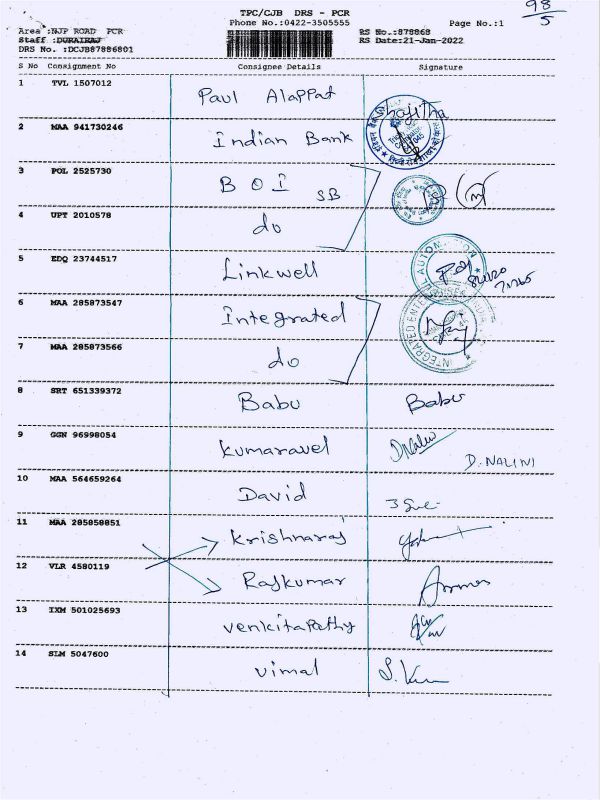 98/5
TPC/CJB DRS - PCR
Phone No.:0422-3505555
Page No.:1
Area :NJP ROAD PCR
RS No.:878868
Staff :DURAIRAJ
RS Date:21-Jan-2022
DRS No. :DCJB87886801
S No Consignment No Consignee Details Signature
1 TVL 1507012 Paul Alappat Shajitha
2 MAA 941730246 Indian Bank
3 POL 2525730 B O I SB
4 UPT 2010578 do
5 EDQ 23744517 Linkwell
6 MAA 285873547 Integrated
7 MAA 285873566 do
8 SRT 651339372 Babu Babu
9 GGN 96998054 Kumaravel D.NALINI
10 MAA 564659264 David
11 MAA 285858851 Krishnaraj
12 VLR 4580119 Rajkumar
13 IXM 501025693 Venkitapathy
14 SLM 5047600 Vimal